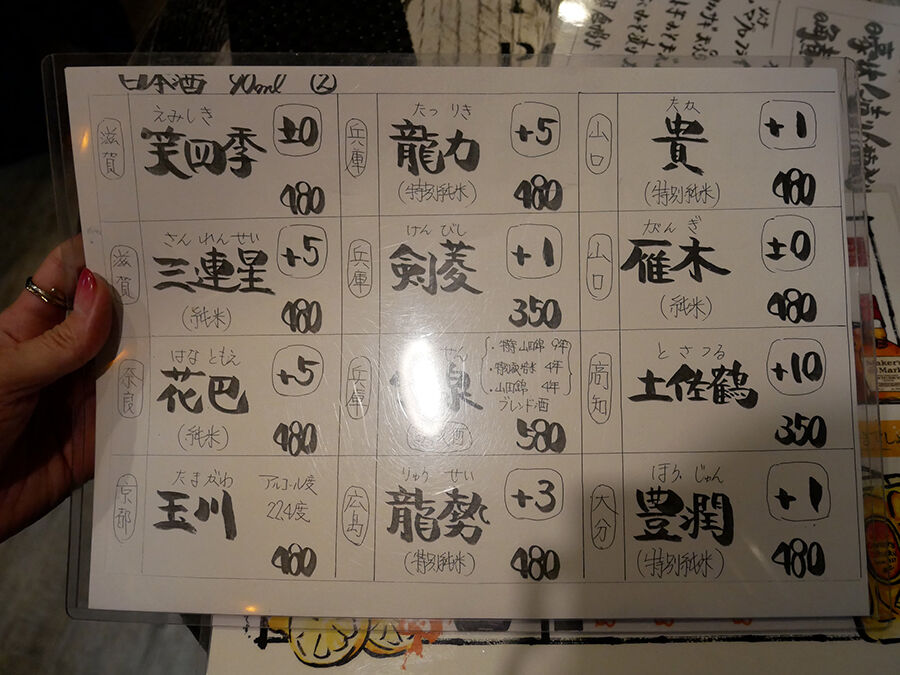 日本酒 90ml ②
滋賀
えみしき
笑四季
±0
480
兵庫
たつりき
龍力
+5
(特別純米)
480
山口
たか
貴
+1
(特別純米)
480
滋賀
さんれんせい
三連星
+5
(純米)
480
兵庫
けんびし
剣菱
+1
350
山口
がんぎ
雁木
±0
(純米)
480
奈良
はなともえ
花巴
+5
(純米)
480
兵庫
せん
泉
・山田錦 9年
4年
・山田錦 4年
ブレンド酒
580
高知
とさつる
土佐鶴
+10
350
京都
たまがわ
玉川
アルコール度
22.4度
480
広島
りゅうせい
龍勢
+3
(特別純米)
480
大分
ほうじゅん
豊潤
+1
(特別純米)
480